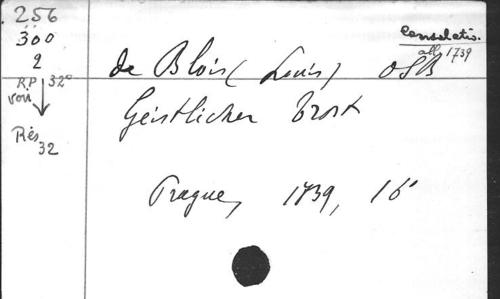 256
300
2
R.P. 32°
von
Rés
32
Consolatio.
all 1739
de Blois (Louis) OSB
Geistlicher Trost
Prague, 1739, 16°